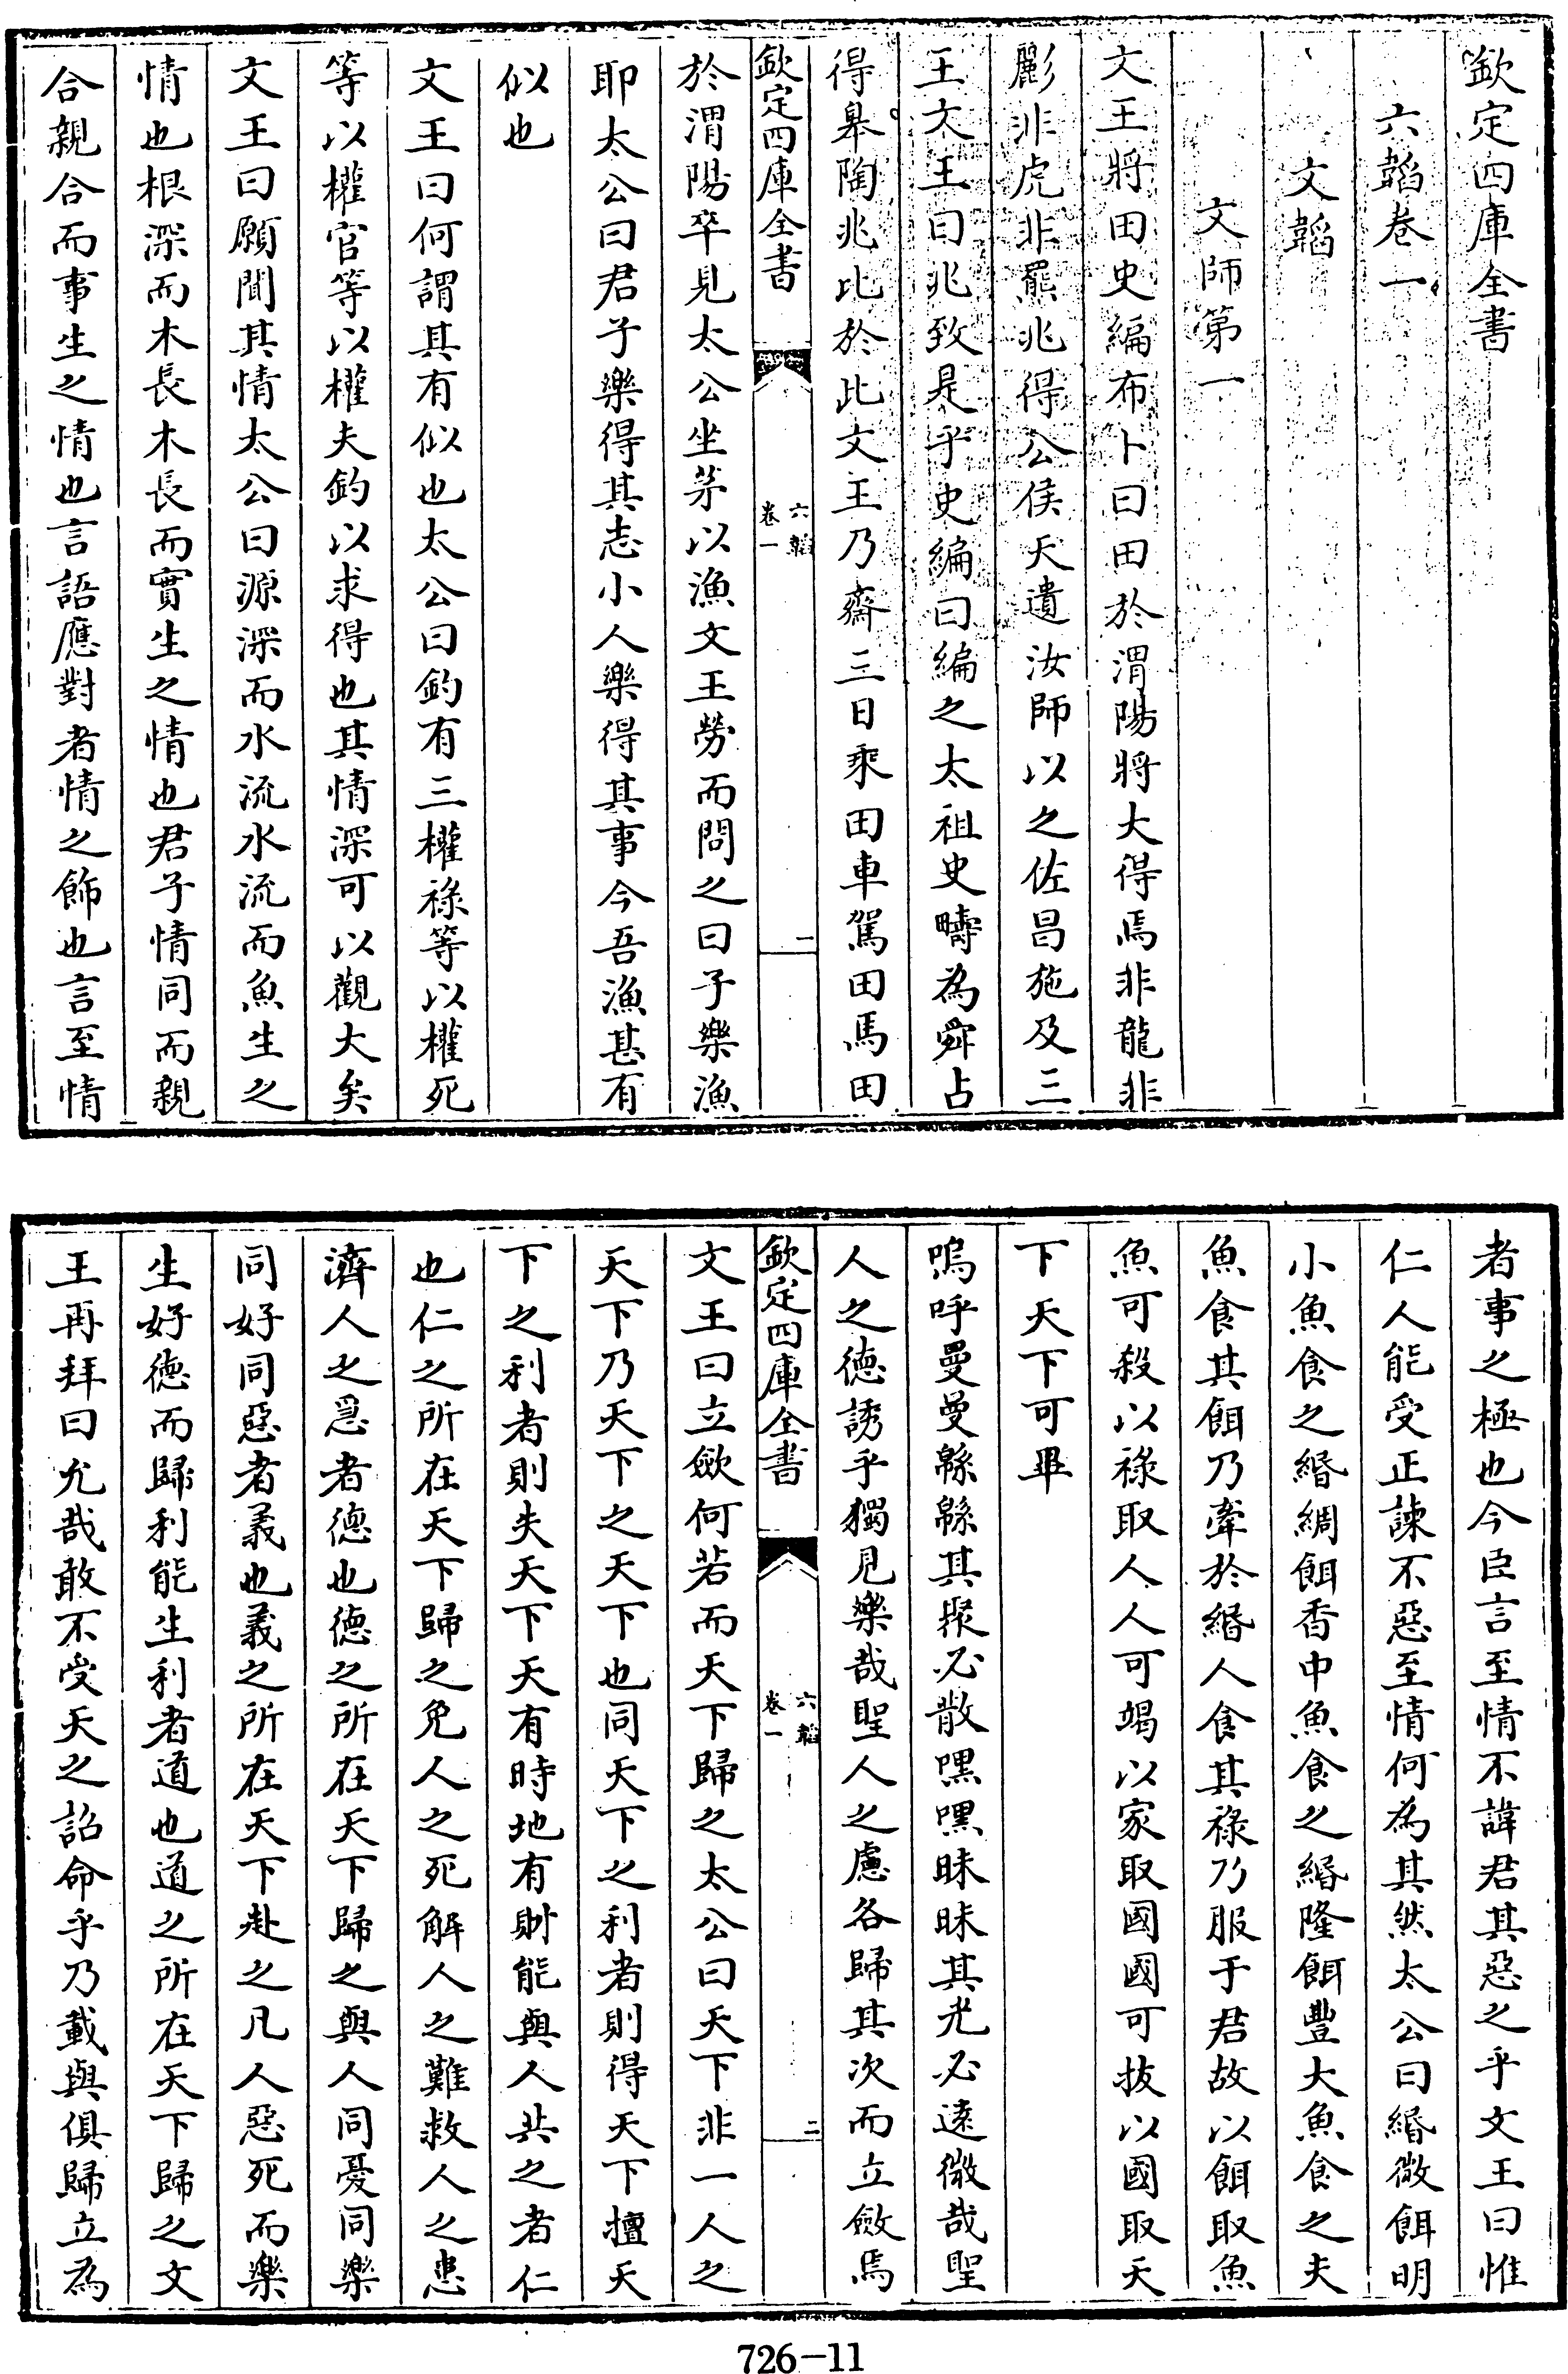 欽定四庫全書
六韜卷一
文韜
文師第一
文王將田史編布卜曰田於渭陽將大得焉非龍非
彲非虎非羆兆得公侯天遺汝師以之佐昌施及三
王文王曰兆致是乎史編曰編之太祖史疇為舜占
得皋陶兆比於此文王乃齋三日乘田車駕田馬田
欽定四庫全書
六韜
卷一
一
於渭陽卒見太公坐茅以漁文王勞而問之曰子樂漁
耶太公曰君子樂得其志小人樂得其事今吾漁甚有
似也
文王曰何謂其有似也太公曰釣有三權祿等以權死
等以權官等以權夫釣以求得也其情深可以觀大矣
文王曰願聞其情太公曰源深而水流水流而魚生之
情也根深而木長木長而實生之情也君子情同而親
合親合而事生之情也言語應對者情之飾也言至情
者事之極也今臣言至情不諱君其惡之乎文王曰惟
仁人能受正諫不惡至情何為其然太公曰緡微餌明
小魚食之緡綢餌香中魚食之緡隆餌豐大魚食之夫
魚食其餌乃牽於緡人食其祿乃服于君故以餌取魚
魚可殺以祿取人人可竭以家取國國可拔以國取天
下天下可畢
嗚呼曼曼緜緜其聚必散嘿嘿昧昧其光必遠微哉聖
人之德誘乎獨見樂哉聖人之慮各歸其次而立斂焉
欽定四庫全書
六韜
卷一
二
文王曰立斂何若而天下歸之太公曰天下非一人之
天下乃天下之天下也同天下之利者則得天下擅天
下之利者則失天下天有時地有財能與人共之者仁
也仁之所在天下歸之免人之死解人之難救人之患
濟人之急者德也德之所在天下歸之與人同憂同樂
同好同惡者義也義之所在天下赴之凡人惡死而樂
生好德而歸利能生利者道也道之所在天下歸之文
王再拜曰允哉敢不受天之詔命乎乃載與俱歸立為
726-11